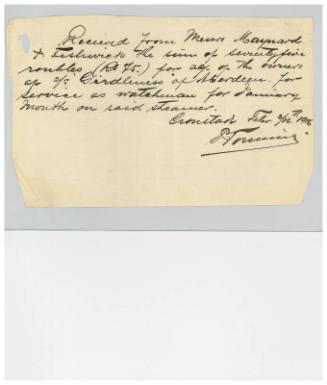 Recieved from Messrs Maynard
& the sum of seventyfive
roubles (Ro 75.) for acc of the owners
of s/s "Girdleness" of Aberdeen. for
service as watchman for January
month on said steamer.
Cronstadt Febr 1916